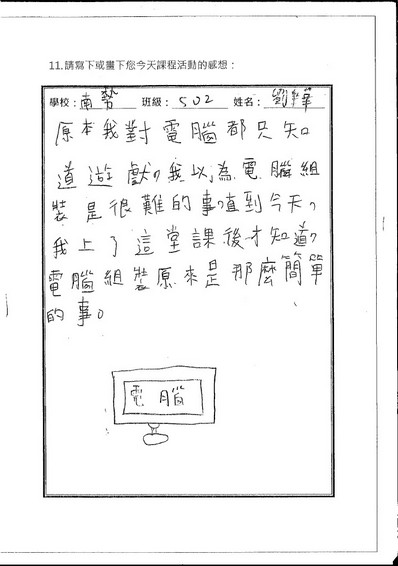 11.請寫下或畫下您今天課程活動的感想：
學校：南勢 班級：502 姓名：劉
原本我對電腦都只知
道遊戲，我以為電腦組
裝是很難的事，直到今天，
我上了這堂課後才知道，
電腦組裝原來是那麼簡單
的事。
電腦